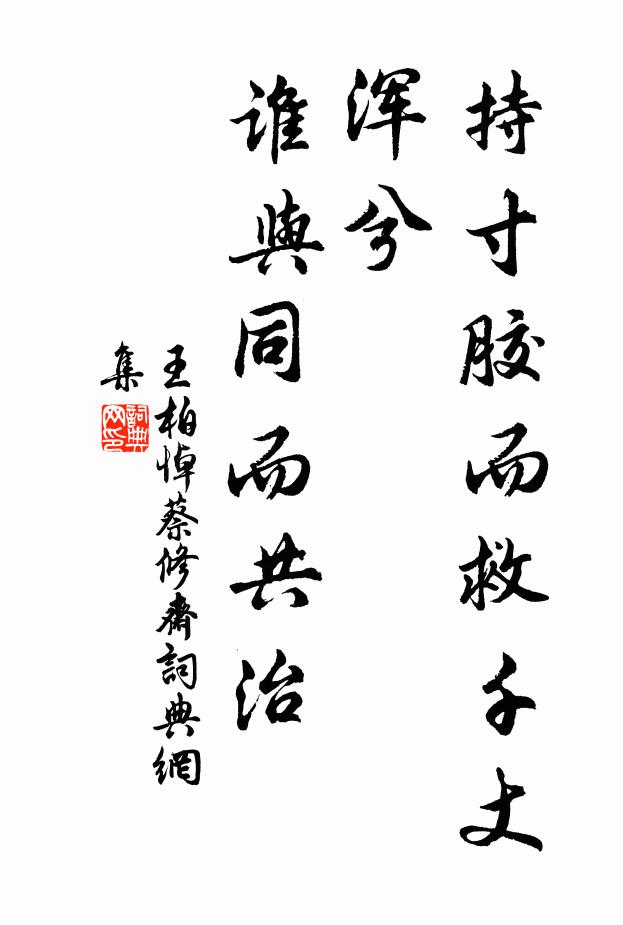 持寸胶而救千丈
浑兮
谁與同而共治
王柏悼蔡修齋詞典網
集
詞典
网印